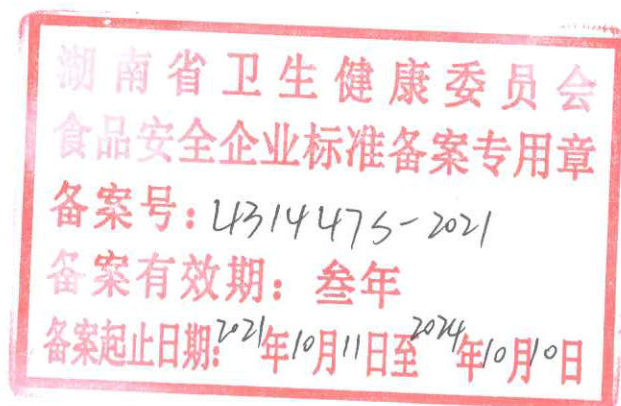 湖南省卫生健康委员会
食品安全企业标准备案专用章
备案号：4314475-2021
备案有效期：叁年
备案起止日期：2021年10月11日至2024年10月10日